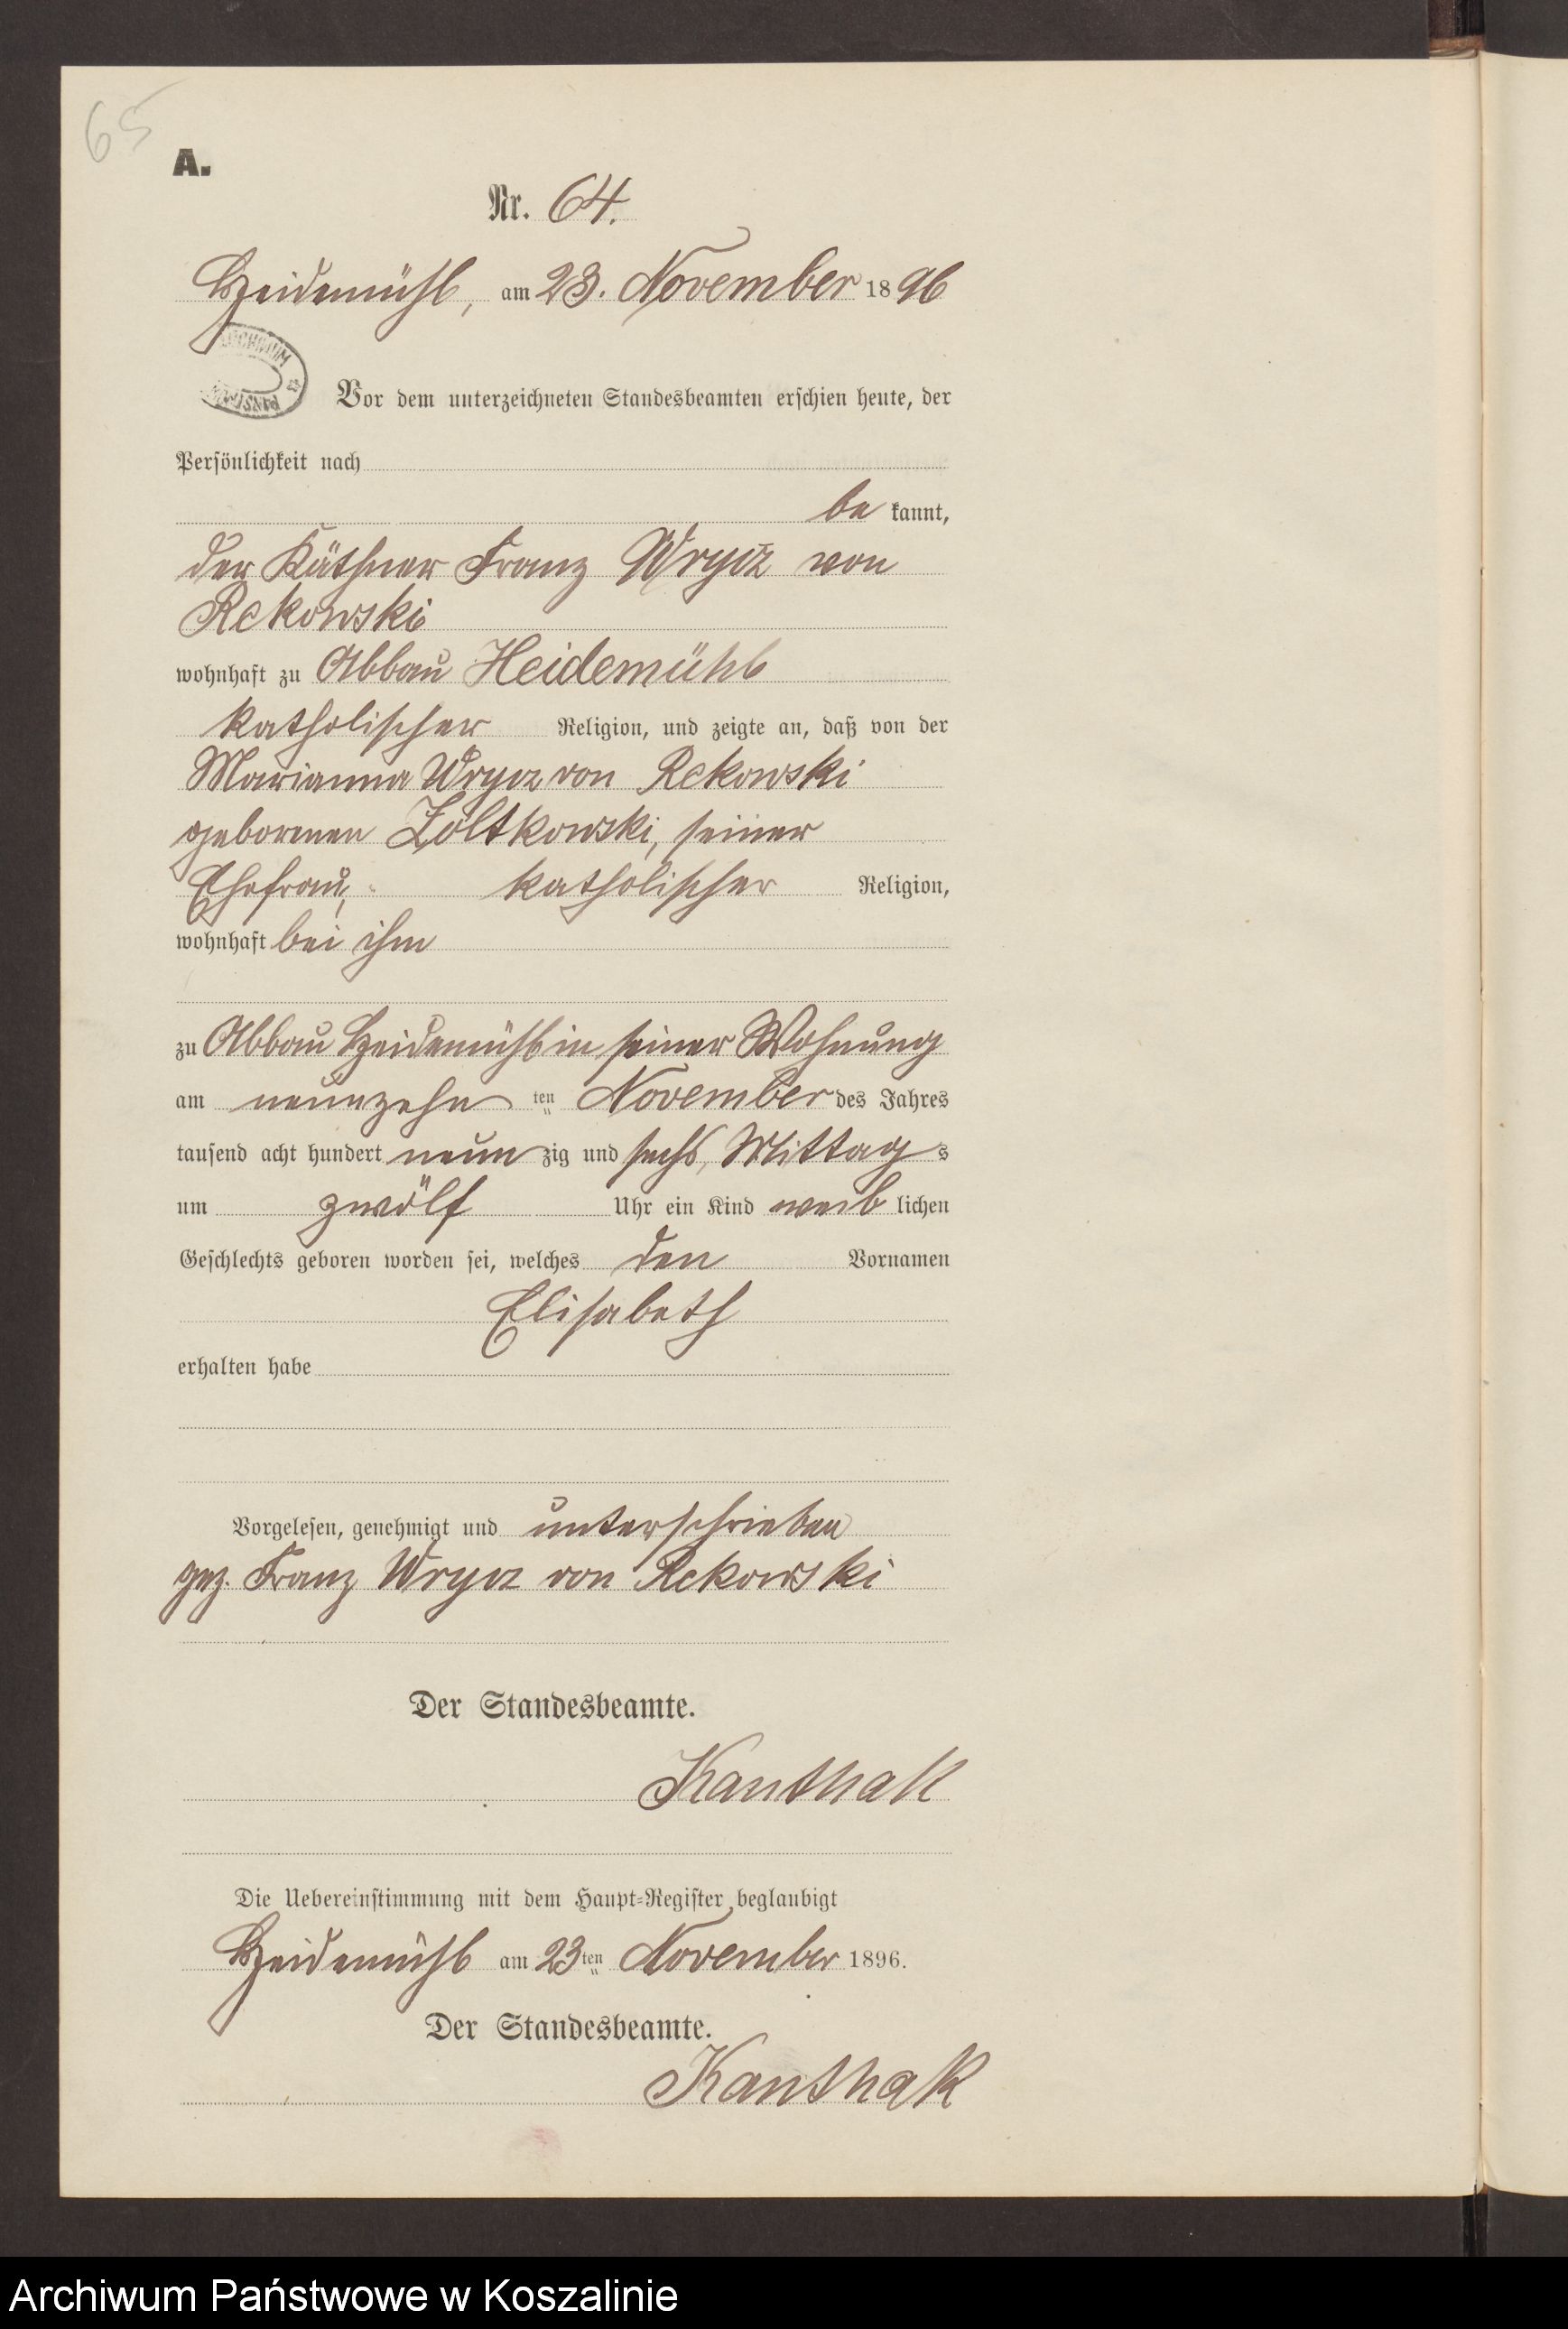 65
A.
Nr. 64.
Heidemühl, am 23. November 1896
Vor dem unterzeichneten Standesbeamten erschien heute, der
Persönlichkeit nach
be kannt,
der Käthner Franz Wrycz von
Rekowski
wohnhaft zu Abbau Heidemühl
katholischer Religion, und zeigte an, daß von der
Marianna Wrycz von Rekowski
geborenen Zoltkowski, seiner
Ehefrau, katholischer Religion,
wohnhaft bei ihm
zu Abbau Heidemühl in seiner Wohnung
am neunzehn ten November des Jahres
tausend acht hundert neun zig und sechs, Mittag s
um zwölf Uhr ein Kind weib lichen
Geschlechts geboren worden sei, welches den Vornamen
Elisabeth
erhalten habe
Vorgelesen, genehmigt und unterschrieben
gez. Franz Wrycz von Rekowski
Der Standesbeamte.
Kanthak
Die Uebereinstimmung mit dem Haupt-Register beglaubigt
Heidemühl am 23ten November 1896.
Der Standesbeamte.
Kanthak
Archiwum Państwowe w Koszalinie